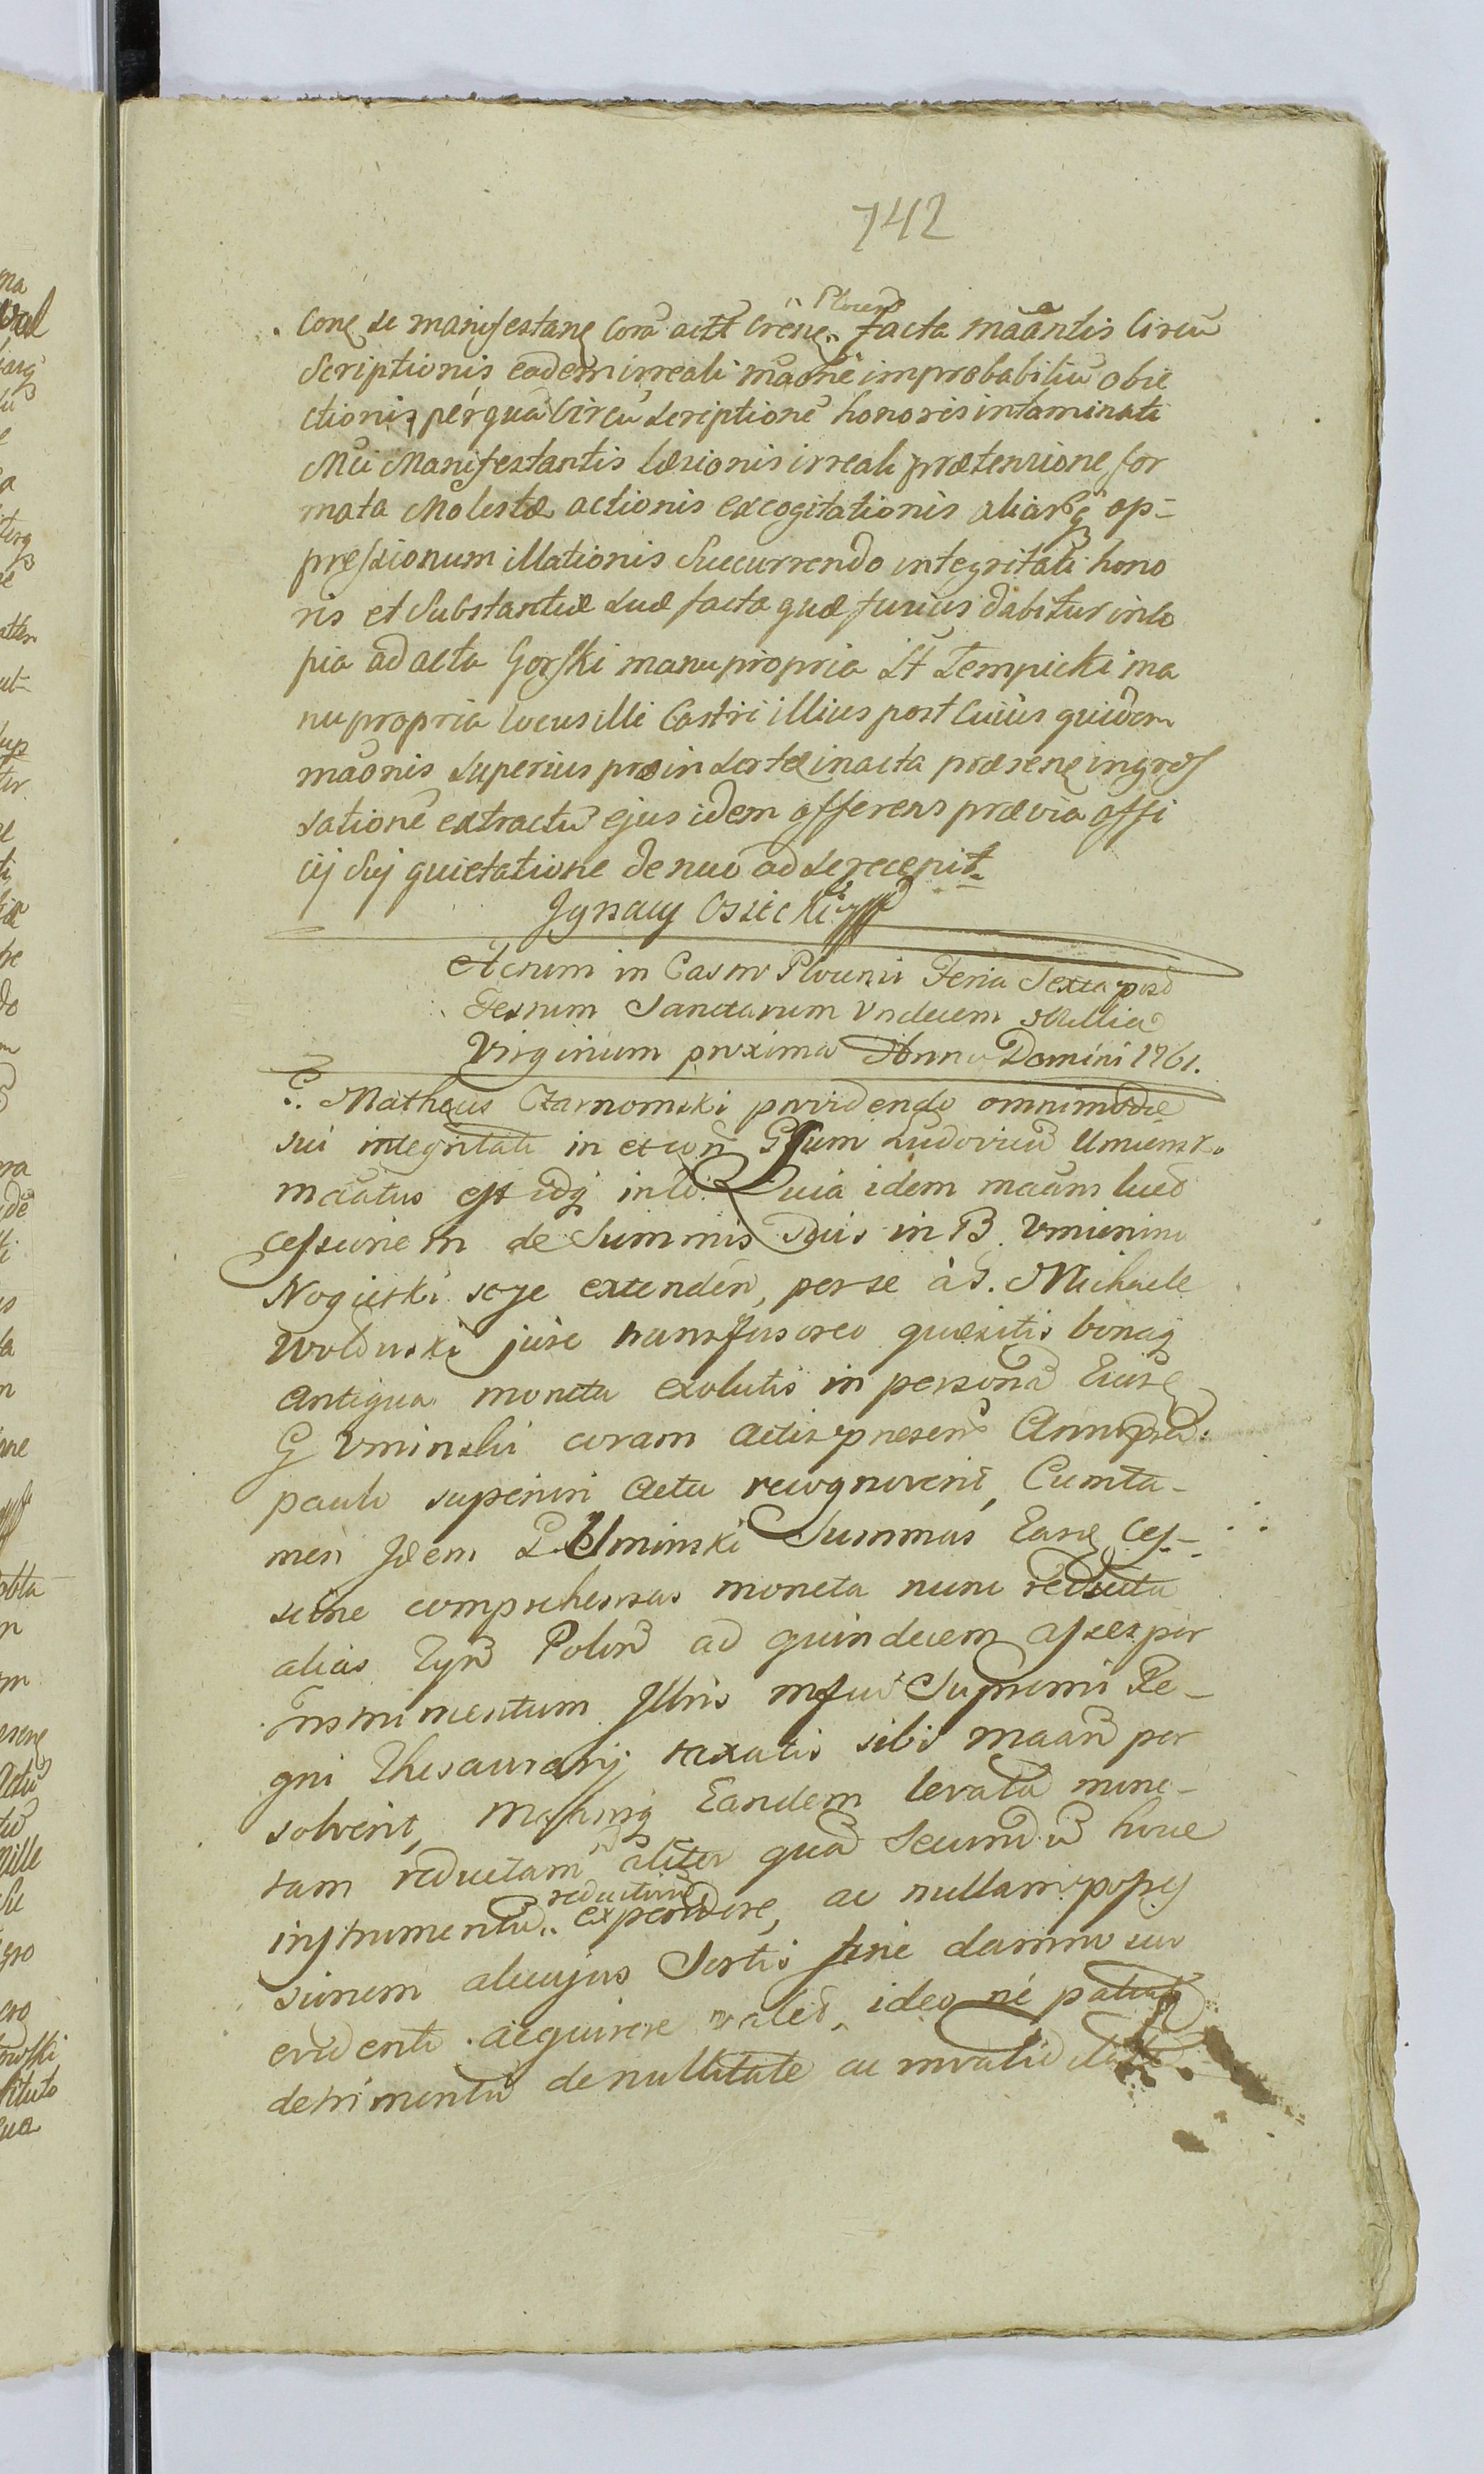 742
Plocen
Conę se manifestanę Corā actt Crēnę facta māāntis Circū
scriptionis eadem irreali māōnē improbabiliū obie
ctionis per quā Circū scriptionē honoris intaminati
Mci Manifestantis læsionis irreali prætensione for
mata Molestæ actionis excogitationis aliarq op-
pressionum illationis Succurrendo integritati hono
ris et Substantiæ Suæ facta quæ fusius dabitur in Co
pia ad acta Gorski manu propria St Lempicki ma
nu propria locus ssilli Castri illius post Cuius quidem
māōnis Superius præinsertæ in acta præsenę ingros
satione extractū ejus idem offerens prævia offi
cij Sui quietatione denuo ad se recepit
Ignacy Ossicki
Actum in Castro Plocensi Feria Sexta post
Festum Sanctarum Undecem Millia
Virginum proxima Anno Domini 1761.
G. Matheus Czarnomski providendo omnimodæ
sui integritati in et con Gsum Ludovicū Uminsk.
mātus est idq in eo. Quia idem māans lucō
cessionem de Summis Suis in B. Uminino
Nogietki sēse extendēn, per se à G. Michaele
Wolduski jure transfusoreo quæsitis bonaq
antiqua moneta exolutis in personā Eiusę
G Uminski coram Actis præsenī Anno præ.
paulo superiori actu recognoverit, Cum ta-
men Idem G. Uminski Summas Easę Ces-
sione comprehensas moneta nunc reducta
alias Tynī Polonī ad quindecem asses per
Instrumentum Illris Mgci Supremi Re-
gni Thesaurarij taxatis sibi māanī per
solverit, Māansq Eandem levatā mone-
tam reductam nō aliter quā Secundū hoce
reductionę
instrumentū expendere, ac nullam posses
sionem alicujus Sortis sine damno suo
evidenti acquirere valeō, ideo nē patiat
detrimentū de nullitate ac invalid itate